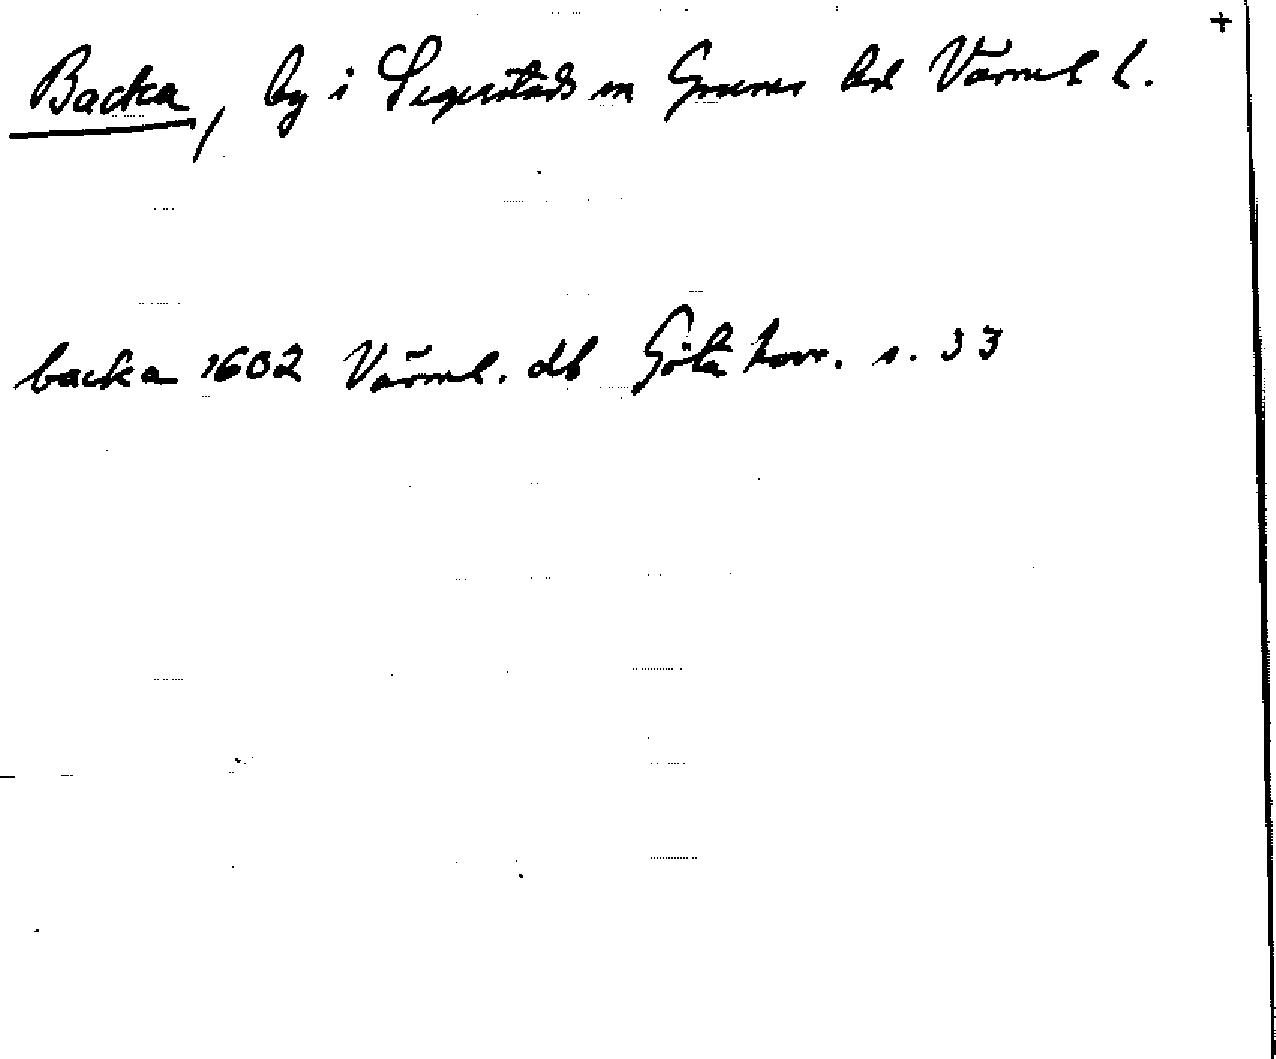 +
Backa, by i Segerstads sn Grums hd Värml l.
backa 1602 Värml. db Göta hovr. s. 33